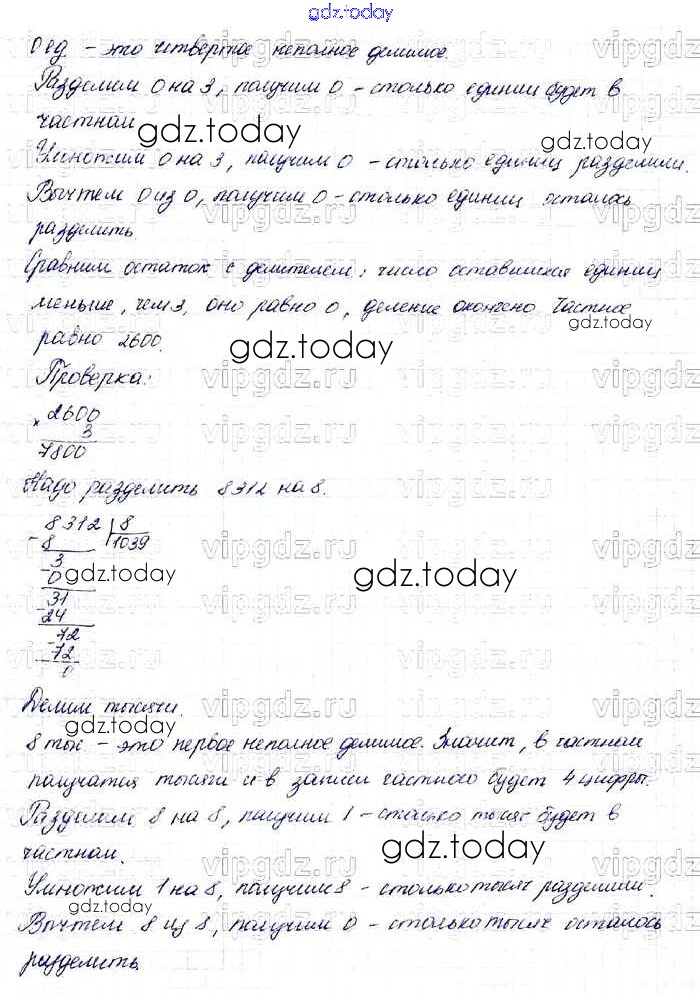 gdz.today
0 ед. – это четвертое неполное делимое.
Разделим 0 на 3, получим 0 – столько единиц будет в
частном
gdz.today
Умножим 0 на 3, получим 0 – столько единиц разделили.
Вычтем 0 из 0, получим 0 – столько единиц осталось
разделить
Сравним остаток с делителем: число оставшихся единиц
меньше, чем 3, оно равно 0, деление окончено. Частное
gdz.today
равно 2600.
gdz.today
Проверка:
× 2600
3
7800
Надо разделить 8312 на 8.
8312 | 8
- 8 | 1039
3
- 0
gdz.today
gdz.today
31
- 24
72
- 72
0
Делим тысячи.
gdz.today
8 тыс. – это первое неполное делимое. Значит, в частном
получатся тысячи и в записи частного будет 4 цифры.
Разделим 8 на 8, получим 1 – столько тысяч будет в
частном.
gdz.today
Умножим 1 на 8, получим 8 – столько тысяч разделили.
gdz.today
Вычтем 8 из 8, получим 0 – столько тысяч осталось
разделить.
vipgdz.ru